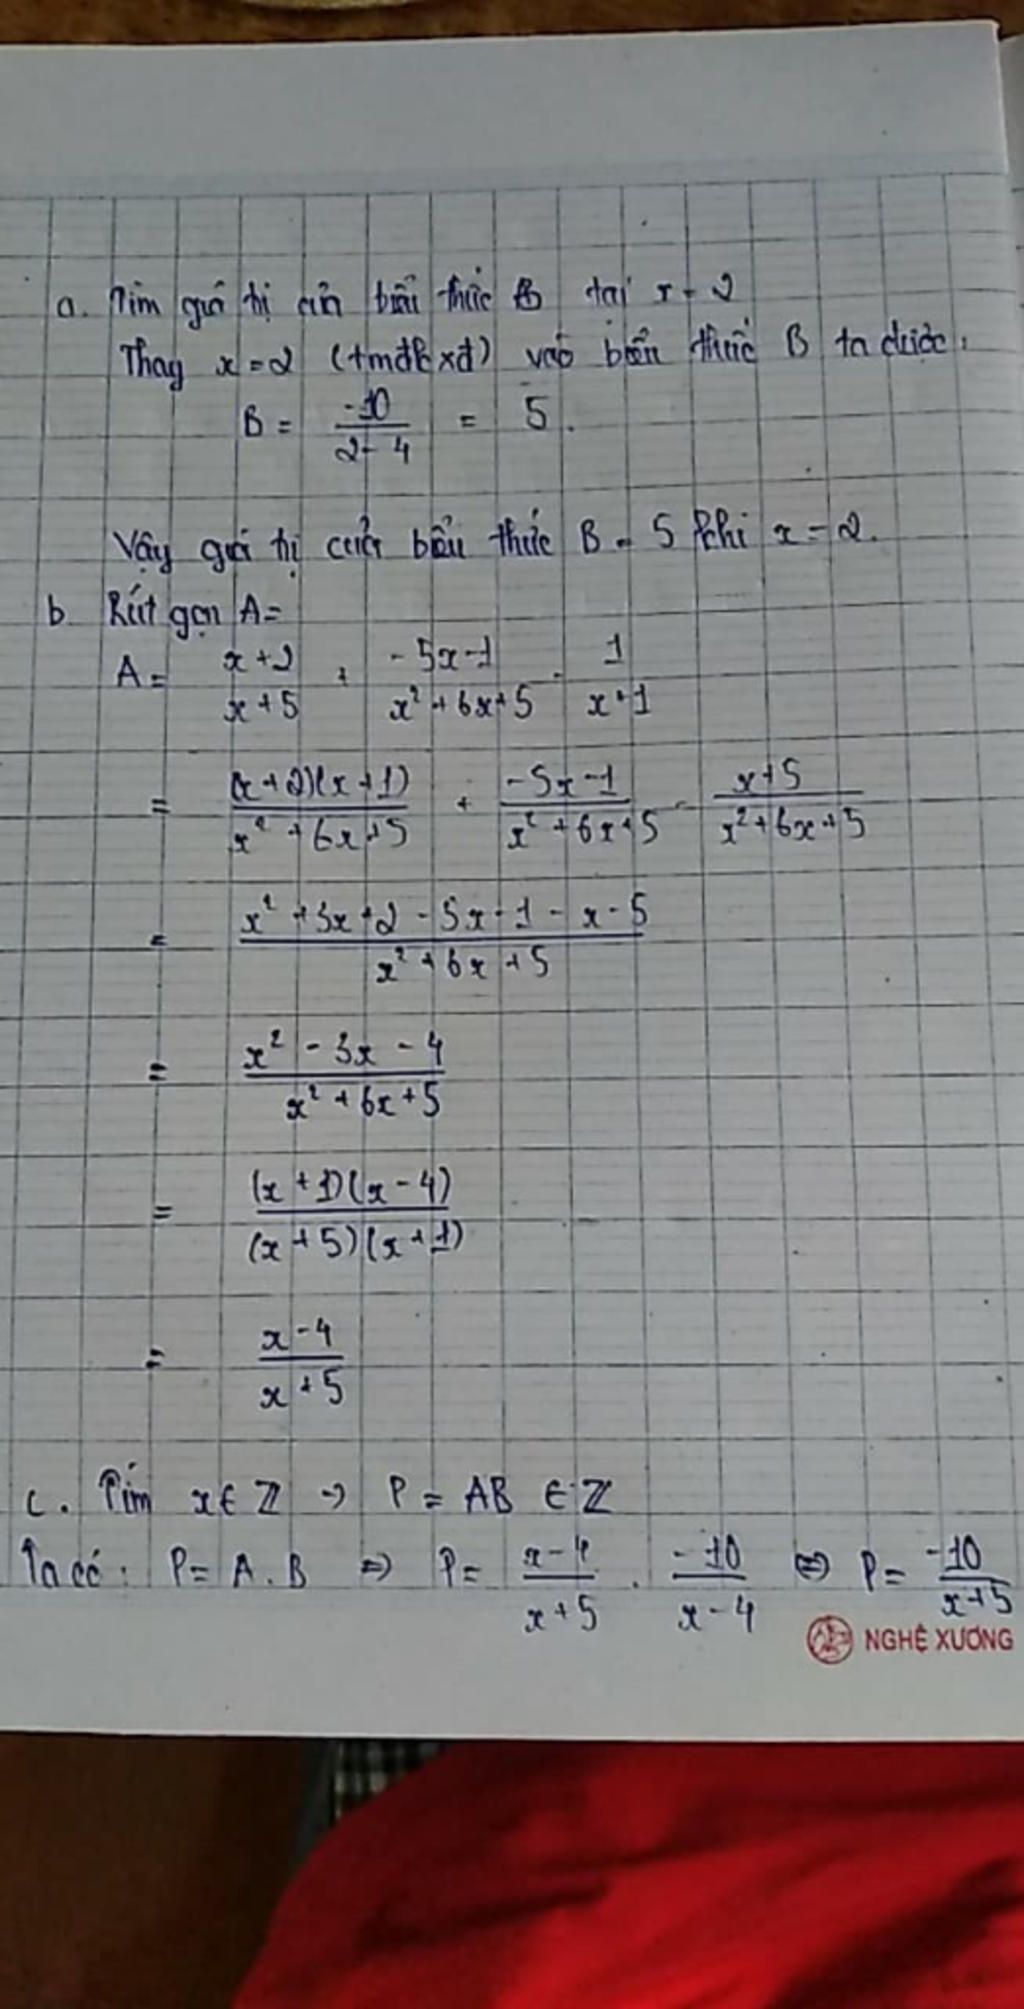 a. Tìm giá trị của biểu thức B tại x = 2
Thay x = 2 (tmđkxđ) vào biểu thức B ta được:
B = \frac{-10}{2-4} = 5.
Vậy giá trị của biểu thức B = 5 khi x = 2.
b Rút gọn A =
A = \frac{x+2}{x+5} + \frac{-5x-1}{x²+6x+5} - \frac{1}{x+1}
= \frac{(x+2)(x+1)}{x²+6x+5} + \frac{-5x-1}{x²+6x+5} - \frac{x+5}{x²+6x+5}
= \frac{x²+3x+2-5x-1-x-5}{x²+6x+5}
= \frac{x²-3x-4}{x²+6x+5}
= \frac{(x+1)(x-4)}{(x+5)(x+1)}
= \frac{x-4}{x+5}
c. Tìm x ∈ Z → P = AB ∈ Z
Ta có: P = A.B => P = \frac{x-4}{x+5} . \frac{-10}{x-4} <=> P = \frac{-10}{x+5}
NGHỆ XƯƠNG